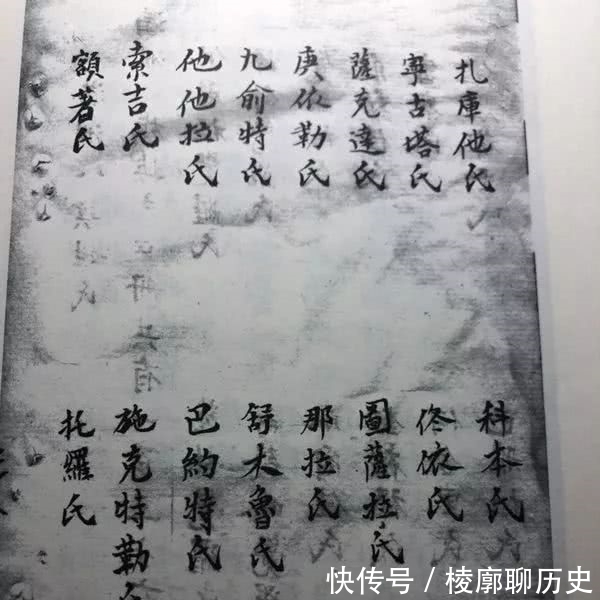 扎庫他氏
寧古塔氏
薩克達氏
庚依勒氏
九俞特氏
他他拉氏
索吉氏
額著氏
科本氏
佟依氏
圖薩拉氏
那拉氏
舒木魯氏
巴約特氏
施克特勒氏
托羅氏
快传号 / 棱廓聊历史